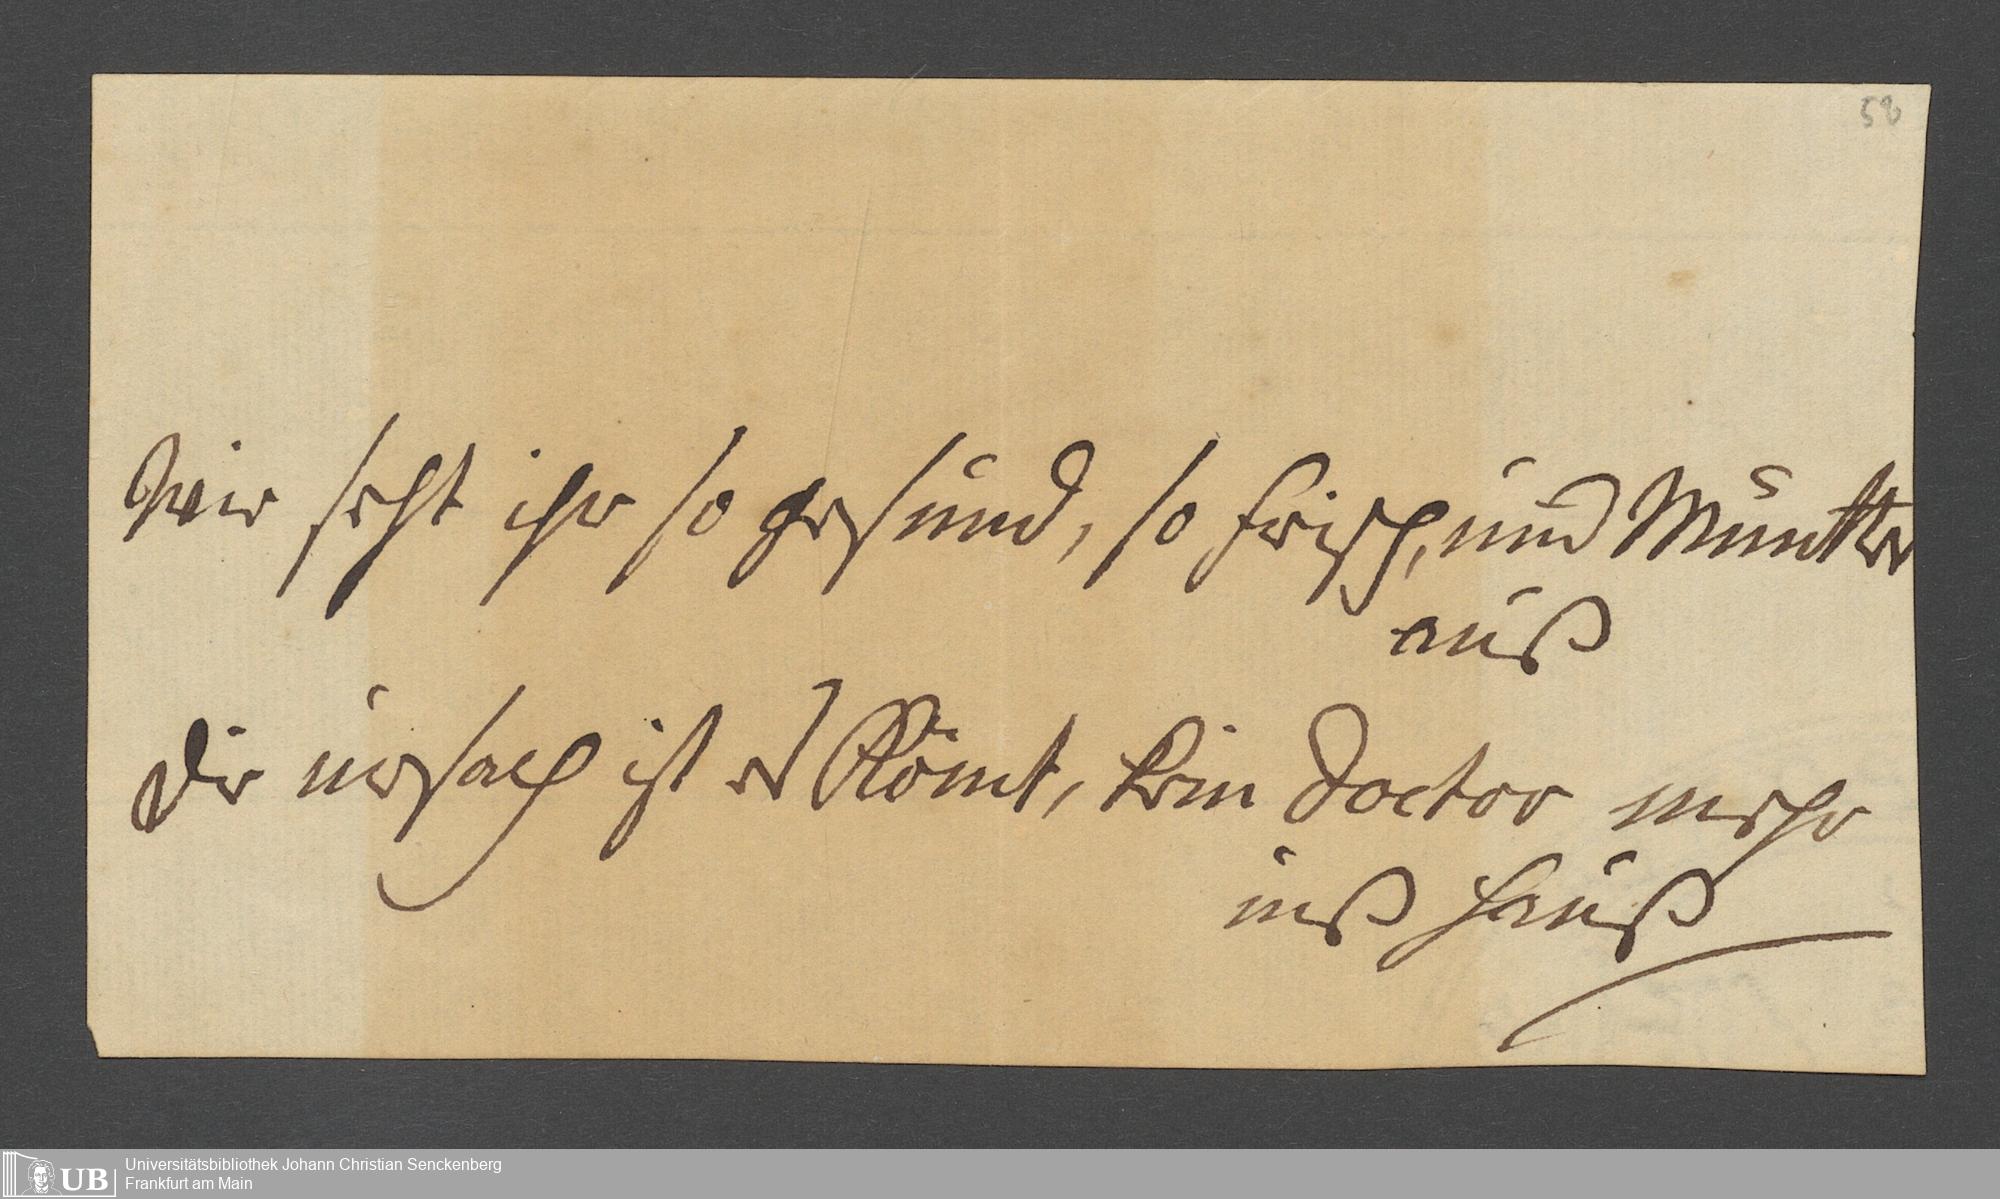 58
Wie seht ihr so gesund, so frisch, und Muntter
auß
Die ursach ist es kömt, kein doctor mehr
inß hauß
UB
Universitätsbibliothek Johann Christian Senckenberg
Frankfurt am Main